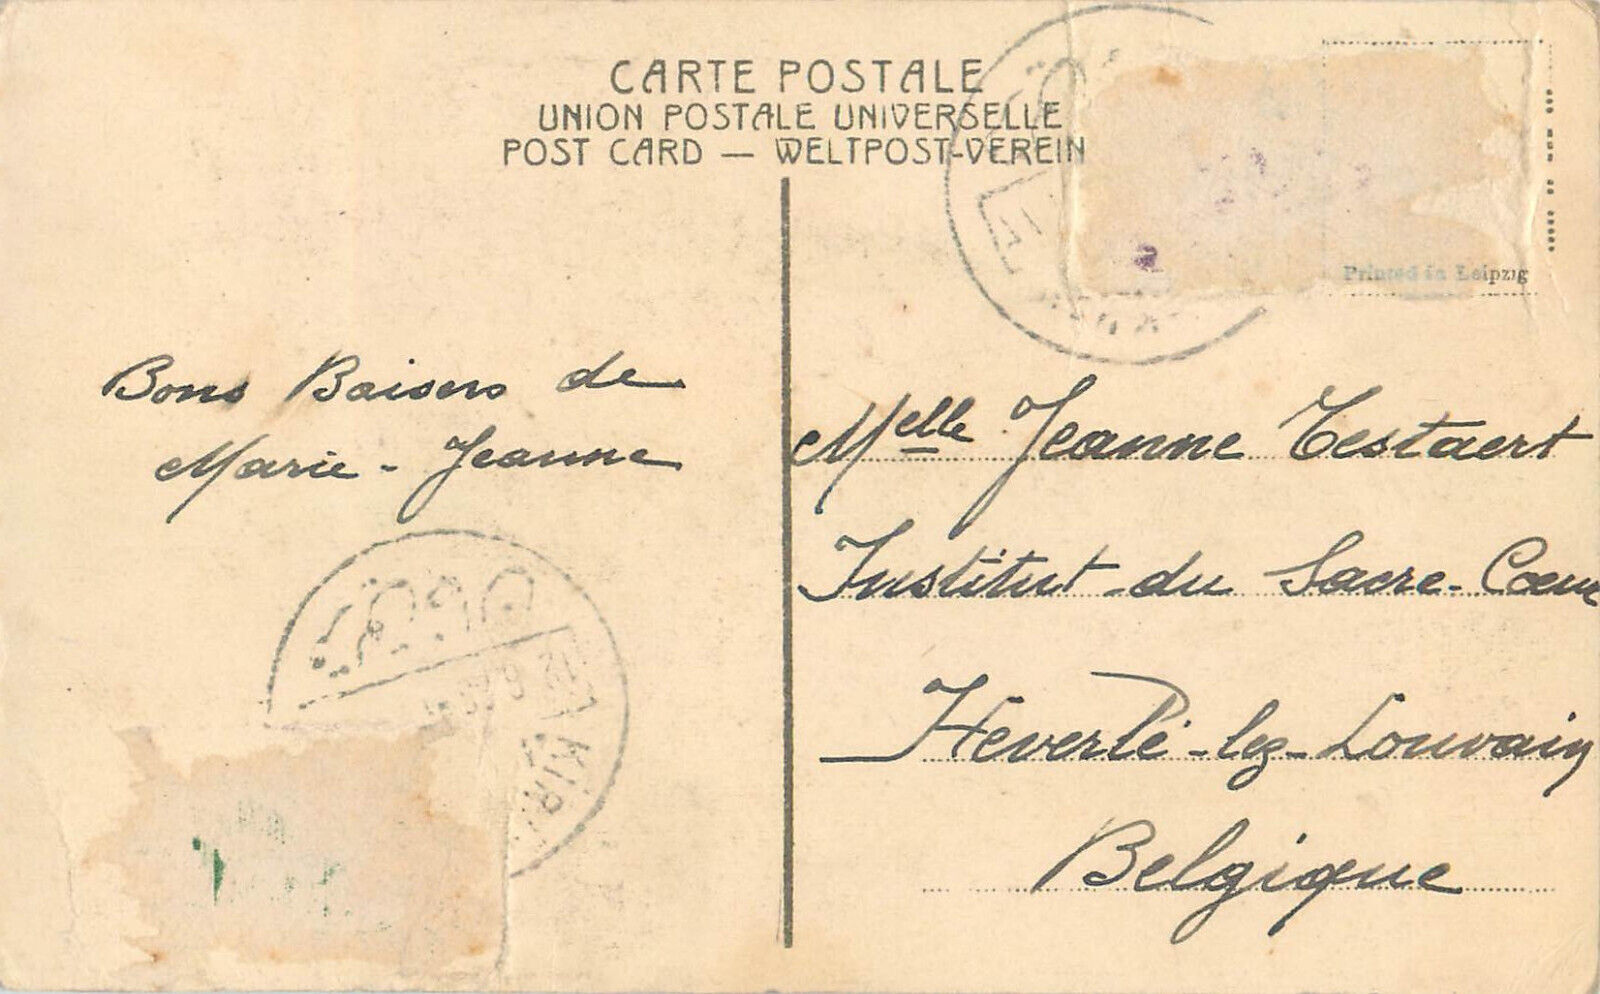 CARTE POSTALE
UNION POSTALE UNIVERSELLE
POST CARD — WELTPOST-VEREIN
Printed in Leipzig
Bons Baisers de
Marie-Jeanne
Melle Jeanne Testaert
Institut du Sacre-Coeur
Heverlé-lez-Louvain
Belgique